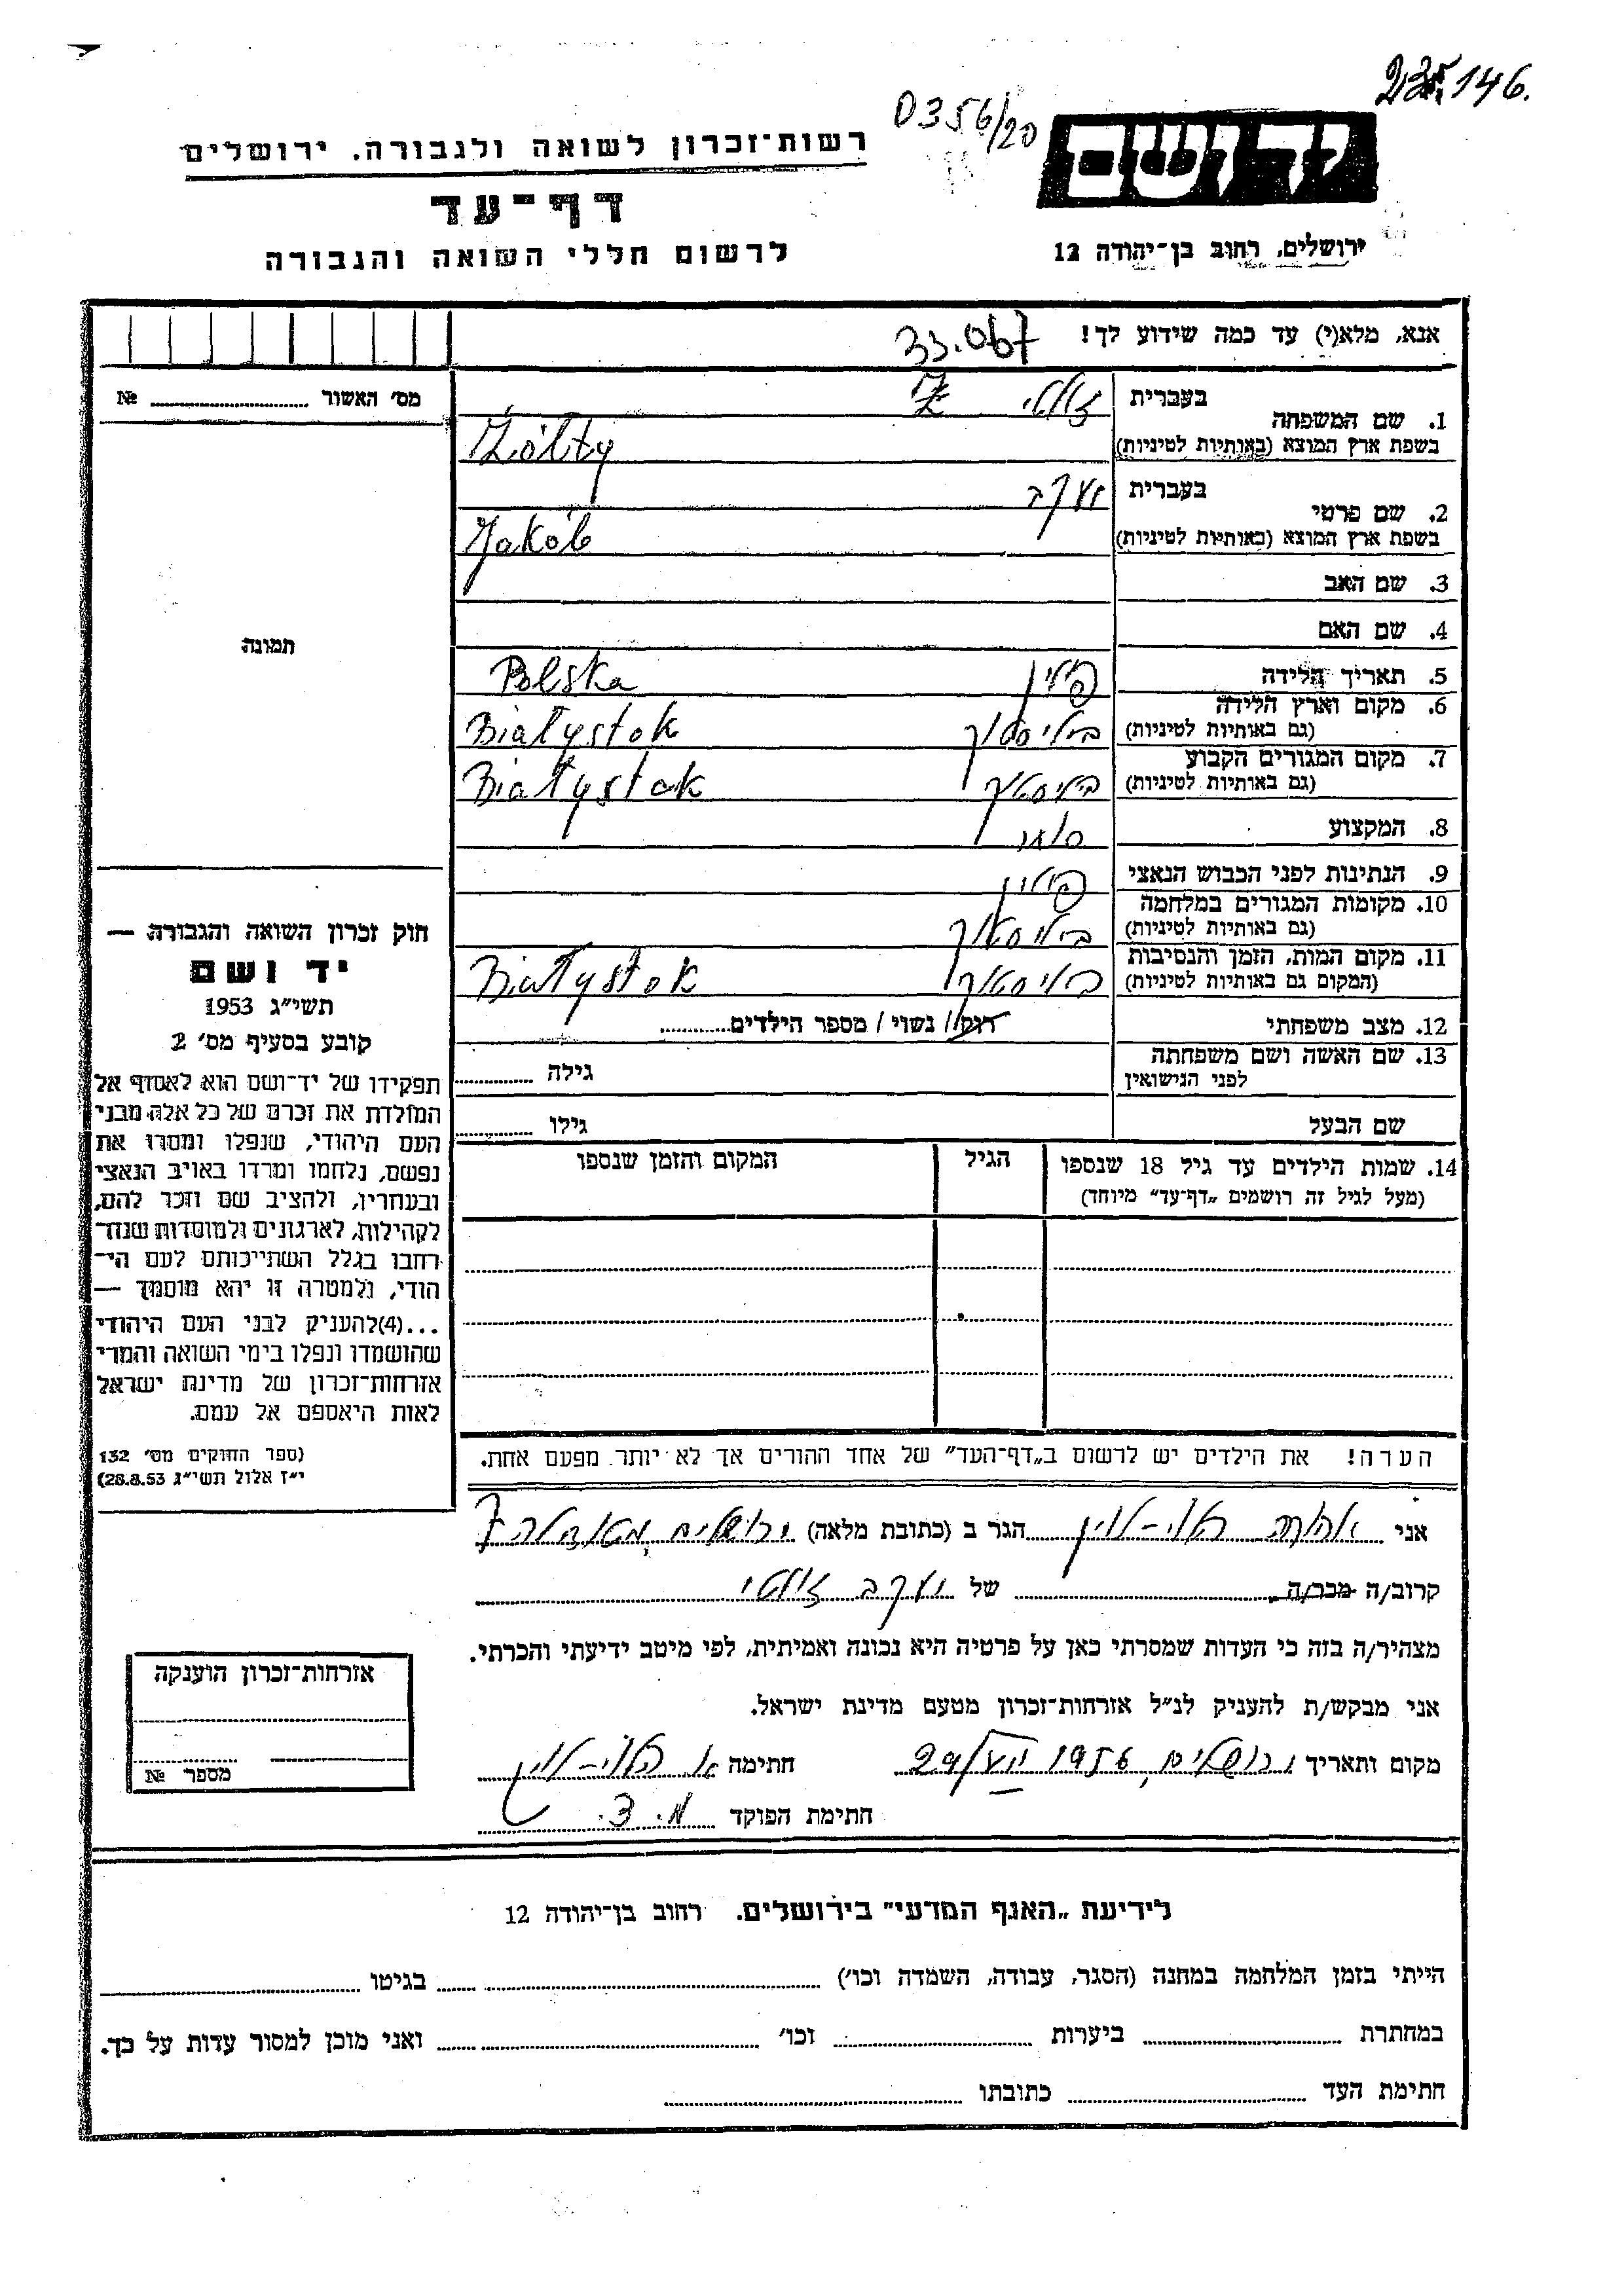 235,146.
D356/20
רשות־זכרון לשואה ולגבורה. ירושלים
יד ושם
דף־עד
ירושלים, רחוב בן־יהודה 12
לרשום חללי השואה והגבורה
אנא, מלא(י) עד כמה שידוע לך!
33.067
מס' האשור № ........
1. שם המשפחה בעברית זולטי
בשפת ארץ המוצא (באותיות לטיניות) Żółty
2. שם פרטי בעברית יעקב
בשפת ארץ המוצא (באותיות לטיניות) Jakób
3. שם האב
4. שם האם
תמונה
5. תאריך הלידה פולין Polska
6. מקום וארץ הלידה
(גם באותיות לטיניות) ביאליסטוק Białystok
7. מקום המגורים הקבוע
(גם באותיות לטיניות) Białystok
8. המקצוע סוחר
9. הנתינות לפני הכבוש הנאצי פולין
10. מקומות המגורים במלחמה
(גם באותיות לטיניות) ביאליסטוק
11. מקום המות, הזמן והנסיבות
(המקום גם באותיות לטיניות) ביאליסטוק Białystok
12. מצב משפחתי רוק/ נשוי / מספר הילדים........
13. שם האשה ושם משפחתה
לפני הנישואין גילה ........
שם הבעל גילו ........
14. שמות הילדים עד גיל 18 שנספו הגיל המקום והזמן שנספו
(מעל לגיל זה רושמים „דף־עד" מיוחד)
חוק זכרון השואה והגבורה —
יד ושם
תשי"ג 1953
קובע בסעיף מס' 2
תפקידו של יד־ושם הוא לאסוף אל
המולדת את זכרם של כל אלה מבני
העם היהודי, שנפלו ומסרו את
נפשם, נלחמו ומרדו באויב הנאצי
ובעוזריו, ולהציב שם וזכר להם,
לקהילות, לארגונים ולמוסדות שנח־
רבו בגלל השתייכותם לעם הי־
הודי, ולמטרה זו יהא מוסמך —
...(4)להעניק לבני העם היהודי
שהושמדו ונפלו בימי השואה והמרי
אזרחות־זכרון של מדינת ישראל
לאות היאספם אל עמם.
(ספר החוקים מס' 132
י"ז אלול תשי"ג 28.8.53)
הערה! את הילדים יש לרשום ב„דף־העד" של אחד ההורים אך לא יותר מפעם אחת.
אני ........ הגר ב (כתובת מלאה) ירושלים, ........ 7
קרוב/ה מכר/ה ........ של יעקב זולטי
מצהיר/ה בזה כי העדות שמסרתי כאן על פרטיה היא נכונה ואמיתית, לפי מיטב ידיעתי והכרתי.
אני מבקש/ת להעניק לנ"ל אזרחות־זכרון מטעם מדינת ישראל.
מקום ותאריך ירושלים, 1956 29/ חתימה ........
חתימת הפוקד
אזרחות־זכרון הוענקה
מספר №
לידיעת „האגף המדעי" בירושלים. רחוב בן־יהודה 12
הייתי בזמן המלחמה במחנה (הסגר, עבודה, השמדה וכו') ........ בגיטו ........
במחתרת ........ ביערות ........ וכו' ........ ואני מוכן למסור עדות על כך.
חתימת העד ........ כתובתו ........